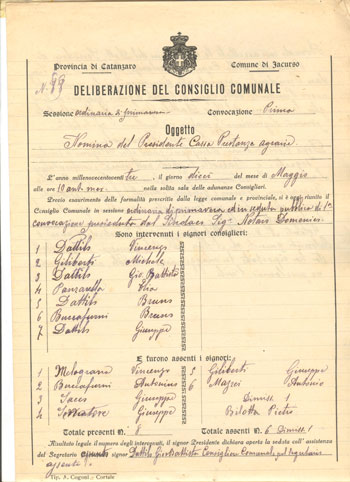 Provincia di Catanzaro Comune di Jacurso
N. 99
DELIBERAZIONE DEL CONSIGLIO COMUNALE
Sessione ordinaria di primavera Convocazione Prima
Oggetto
Nomina del Presidente Cassa Prestanza agraria
L'anno millenovecento tre, il giorno dieci del mese di Maggio
alle ore 10 ant. mes. nella solita sala delle adunanze Consigliari.
Previo esaurimento delle formalità prescritte dalla legge comunale e provinciale, si è qui riunito il
Consiglio Comunale in sessione ordinaria di primavera ed in seduta pubblica di 1ª
convocazione presieduta dal Sindaco Sig. Notaro Domenico
Sono intervenuti i signori consiglieri:
1 Dattilo Vincenzo
2 Giliberti Michele
3 Dattilo Gio. Battista
4 Panzarella Elia
5 Dattilo Bruno
6 Buccafurni Bruno
7 Dattilo Giuseppe
E furono assenti i signori:
1 Melograne Vincenzo 5 Giliberti Giuseppe
2 Buccafurni Antonino 6 Mazzei Antonio
3 Giuseppe Dimessi 1
4 Serratore Giuseppe Bilotta Pietro
Totale presenti N. 8 Totale assenti N. 6 Dimessi 1
Risultato legale il numero degli intervenuti, il signor Presidente dichiara aperta la seduta coll'assistenza
del Segretario Dattilo Gio. Battista Consigliere Comunale pel Segretario
assente.
Tip. A. Cognoi - Cortale